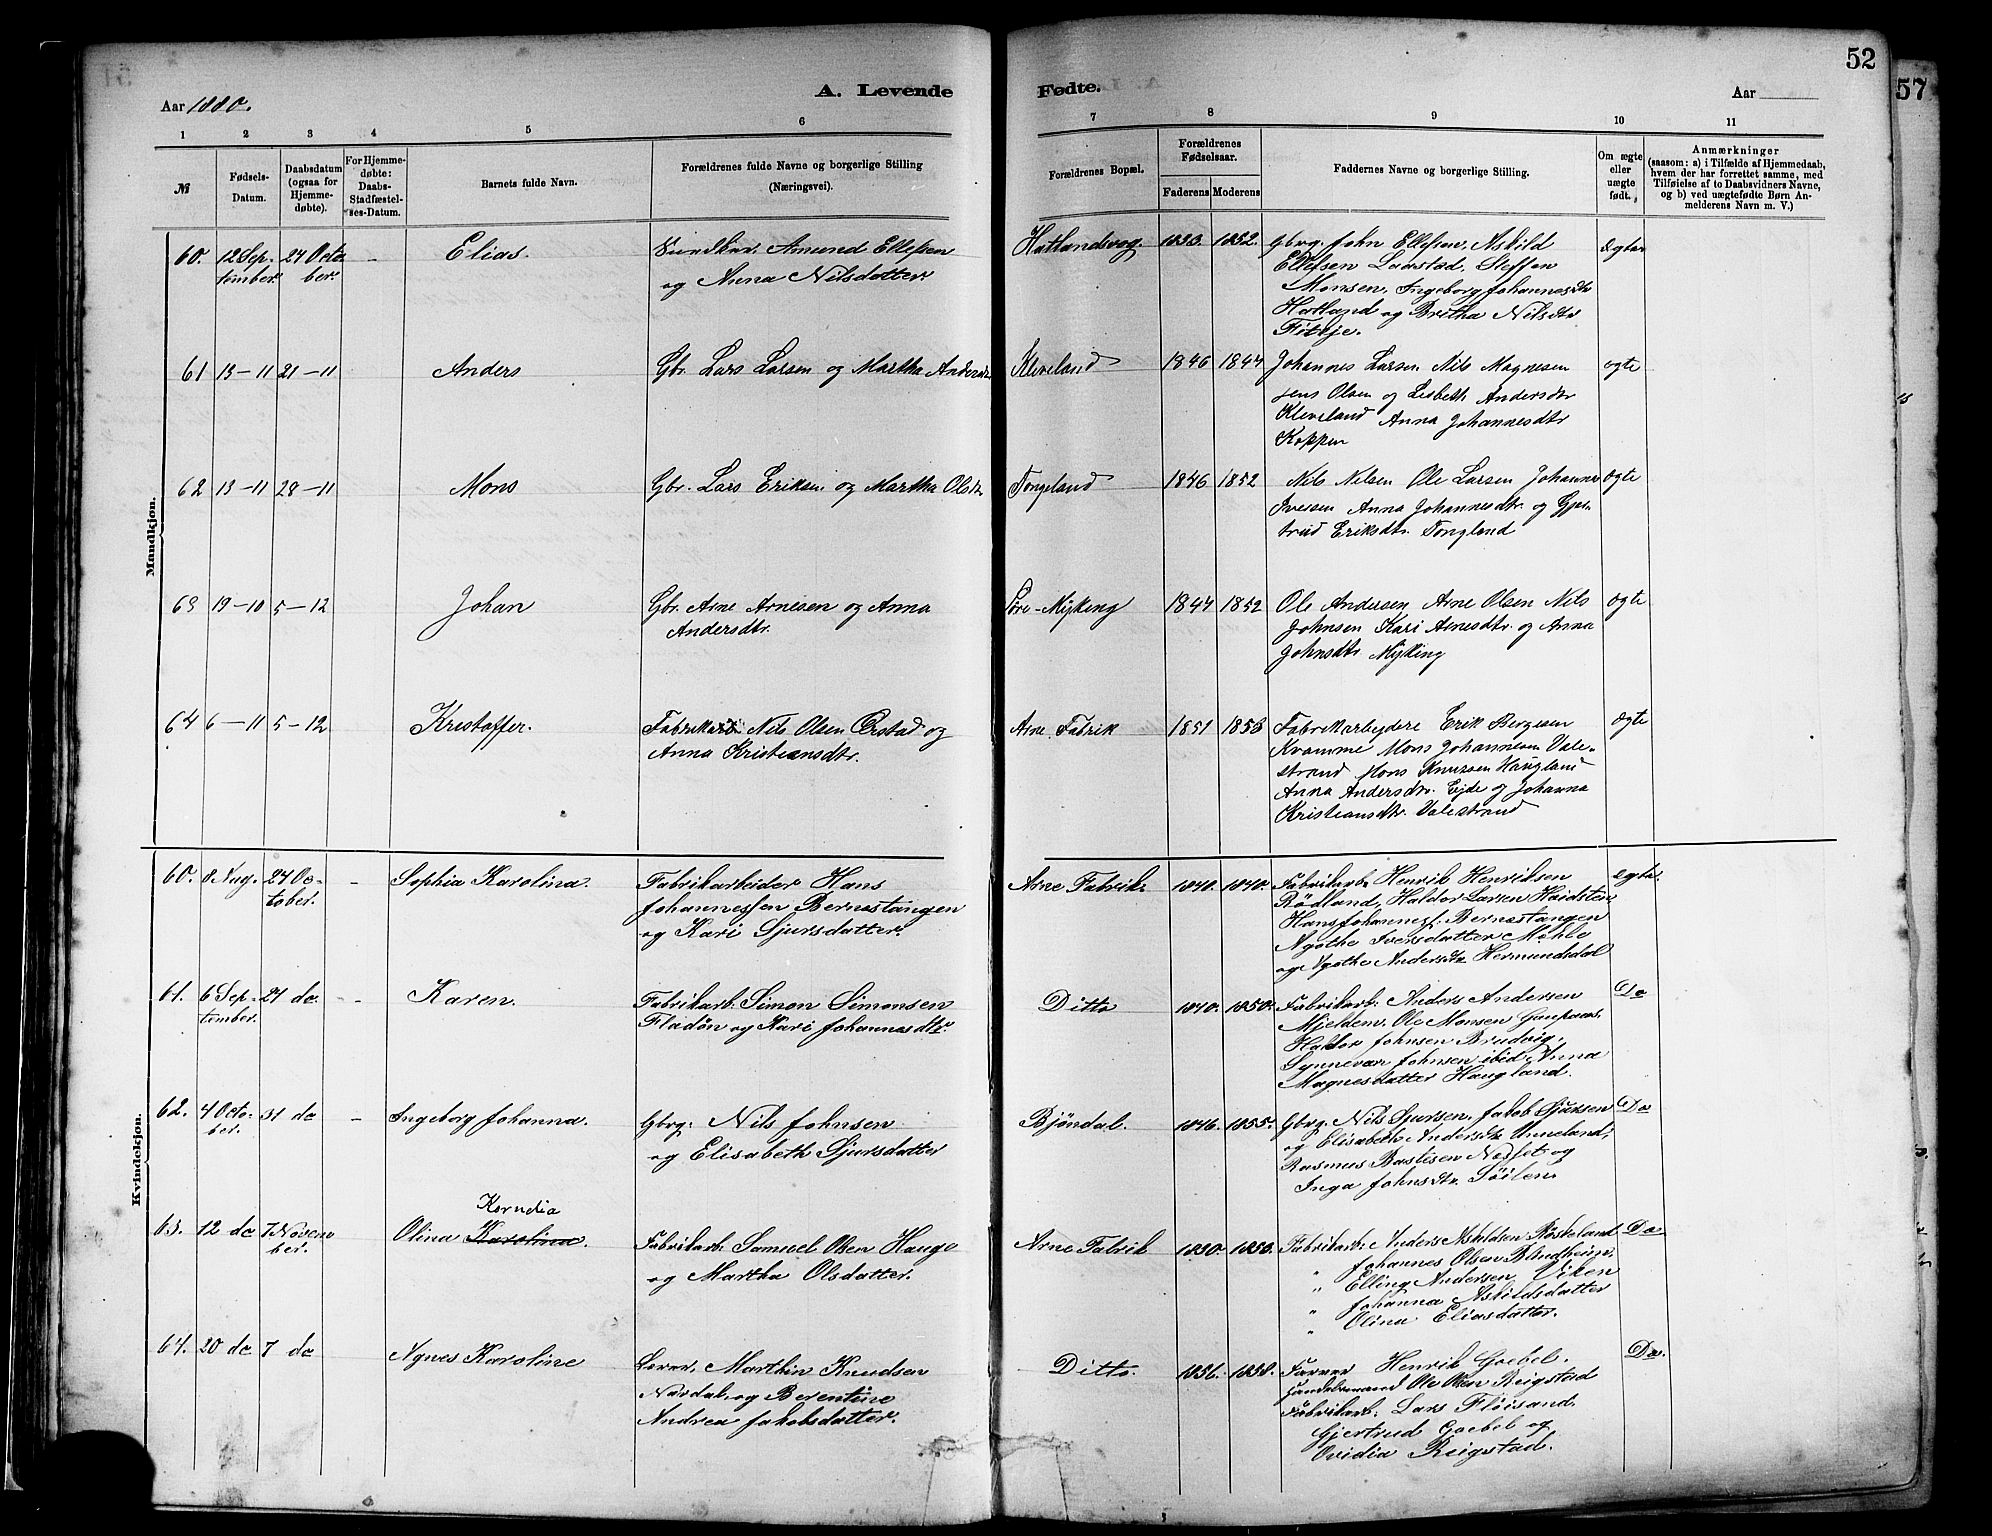 52
57
Aar 1880.
A. Levende
Fødte.
Aar
1 2 3 4 5 6 7 8 9 10 11
№
Fødsels-
Datum.
Daabsdatum
(ogsaa for
Hjemme-
døbte).
For Hjemme-
døbte:
Daabs-
Stadfæstel-
ses-Datum.
Barnets fulde Navn.
Forældrenes fulde Navne og borgerlige Stilling
(Næringsvei).
Forældrenes Bopæl.
Forældrenes
Fødselsaar.
Faderens Moderens
Faddernes Navne og borgerlige Stilling.
Om ægte
eller
uægte
født.
Anmærkninger
(saasom: a) i Tilfælde af Hjemmedaab,
hvem der har forrettet samme, med
Tilføielse af to Daabsvidners Navne,
og b) ved uægtefødte Børn An-
melderens Navn m. V.)
Mandkjøn.
60. 12 Sep-
tember.
24 Octo
ber.
-
Elias.
Amund Ellefsen
og Anna Nilsdatter.
Hatlandsvaag. 1852.
Gbrg. John Ellefsen, Askild
Ellefsen Laastad, Steffen
Monsen, Ingeborg Johannesdtr
Hatland og Britha Nilsdtr
Ægte
61 13-11 21-11
Anders
Gbr. Lars Larsen og Martha Andersdtr.
Kleveland 1846 1844
Johannes Larsen Nils Magnesen
Jens Olsen og Lisbeth Andersdtr
Kleveland Anna Johannesdtr
Koppen
ægte
62 13-11 28-11
Mons
Gbr. Lars Eriksen og Martha Olsdtr
Tongeland 1846 1852
Nils Nilsen Ole Larsen Johannes
Iversen Anna Johannesdtr. og Gjer-
trud Eriksdtr. Tongland
ægte
63 19-10 5-12
Johan
Gbr. Arne Arnesen og Anna
Andersdtr.
Søre-Myking 1844 1852
Ole Andersen Arne Olsen Nils
Johnsen Kari Arnesdtr. og Anna
Johnsdtr. Myking
ægte
64 6-11 5-12
Kristoffer.
Nils Olsen Ørstad og
Anna Kristiansdtr.
Arne Fabrik 1851 1853
Fabrikarbejdere Erik Bergesen
Kvamme Mons Johannesen Vale-
strand Mons Knutsen Haugland
Anna Andersdtr. Ejde og Johanna
Kristiansdtr. Valestrand
ægte
Kvindekjøn.
60. 8 Aug. 24 Oc-
tober.
-
Sophia Karolina.
Fabrikarbeider Hans
Johannessen Bernestangen
og Kari Sjursdatter.
Arne Fabrik 1840. 1840.
Fabrikarb. Henrik Henriksen
Rødland, Haldor Larsen Haidsten
Hans Johannesf. Bernestangen
Agothe Iversdatter Mehle
og Agothe Andersdtr Hermundsdal
Ægte.
61. 6 Sep-
tember.
24 do
-
Karen.
Fabrikarb. Simon Simonsen
Fladøn og Kari Johannesdtr.
Ditto 1840. 1850.
Fabrikarb. Anders Andersen
Mjelden. Ole Monsen
Haldor Johnsen Brudvig.
Johnsen ibid. Anna
Magnesdatter Haugland.
Do
62. 4 Octo-
ber.
31 do
-
Ingeborg Johanna.
Gbrg. Nils Johnsen
og Elisabeth Sjursdatter
Bjøndal. 1846. 1855.
Gbrg. Nils Sjursen, Jakob Sjursen
og Elisabeth Andersdtr Unneland,
Rasmus Bastisen Nesset og
Inga Johnsdtr. Søilen.
Do
63. 12 do 7 Novem
ber.
Kornelia
Olina Karolina.
Fabrikarb. Samuel Olsen Hauge
og Martha Olsdatter.
Arne Fabrik 1850. 1853.
Fabrikarb. Anders Askildsen Røskeland
" Johannes Olsen Blindheim.
" Elling Andersen Viken
" Johanna Askildsdatter
" Olina Eliasdatter.
Do
64. 20 do 7 do
Agnes Karoline
Lærer, Marthin Knudsen
Nordal og Berentine
Andrea Jakobsdatter.
Ditto. 1856. 1858.
Farver Henrik Goebel.
Handelsmand Ole Olsen Reigstad
Fabrikarb. Lars Fløisand.
Gjertrud Goebel og
Ovidia Reigstad.
Do.